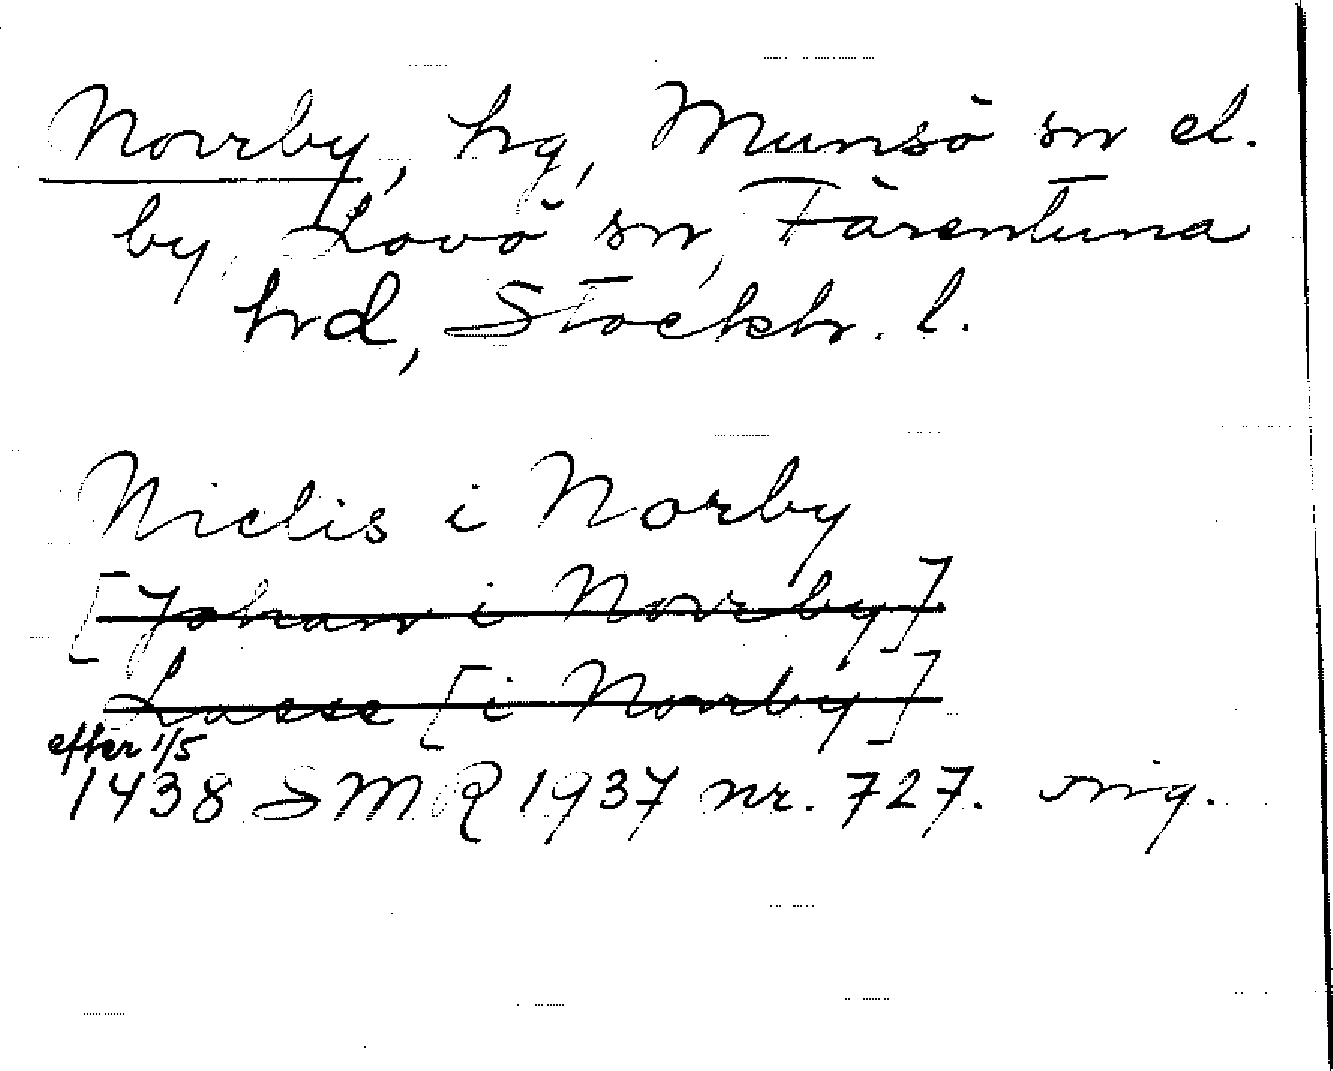 Norrby, hg, Munsö sn el.
by, Lovö sn, Färentuna
hrd, Stockh. l.
Niclis i Norby
[Johan i Norrby]
Lasse [i Norrby]
efter 1/5
1438 SMR 1937 nr. 727. orig.